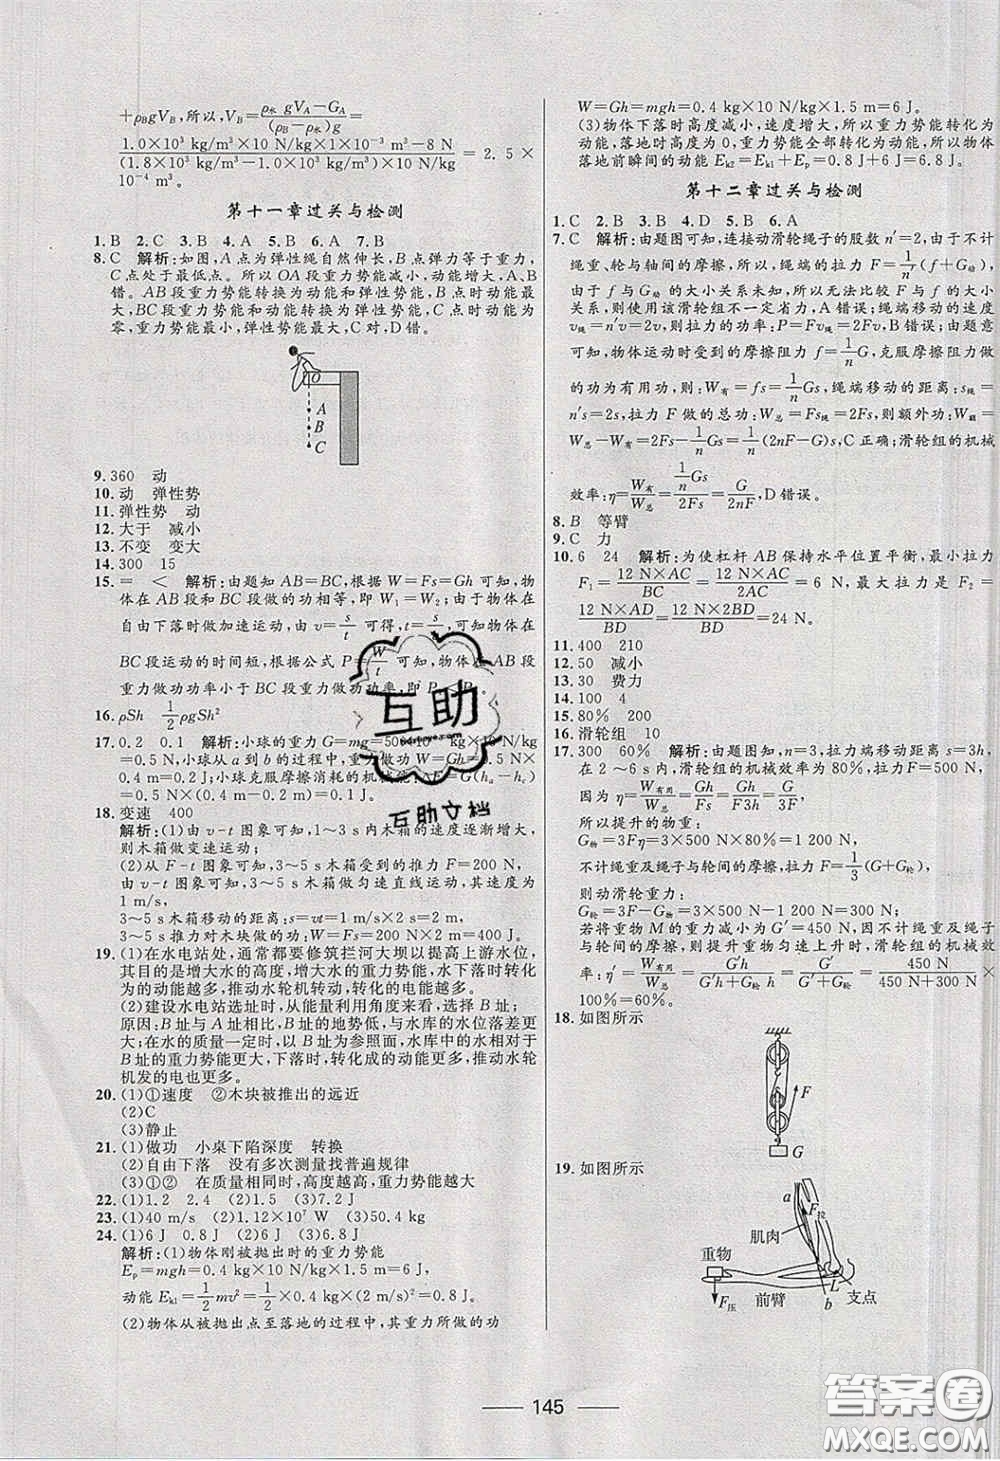 +ρBgVB,所以,VB=(ρ水 gVA−GA)/((ρB−ρ水)g)=
(1.0×10³ kg/m³×10 N/kg×1×10⁻³ m³−8 N)/((1.8×10³ kg/m³−1.0×10³ kg/m³)×10 N/kg) = 2.5×
10⁻⁴ m³。
第十一章过关与检测
1.B 2.C 3.B 4.A 5.B 6.A 7.B
8.C 解析:如图,A点为弹性绳自然伸长,B点弹力等于重力,
C点处于最低点。所以OA段重力势能减小,动能增大,A、B
错。AB段重力势能转换为动能和弹性势能,B点时动能最
大,BC段重力势能和动能转换为弹性势能,C点时动能为
零,重力势能最小,弹性势能最大,C对,D错。
O
A
B
C
9.360 动
10.动 弹性势
11.弹性势 动
12.大于 减小
13.不变 变大
14.300 15
15.= < 解析:由题知AB=BC,根据W=Fs=Gh可知,物
体在AB段和BC段做的功相等,即W₁=W₂;由于物体在
自由下落时做加速运动,由v=s/t可得,t=s/v,可知物体在
BC段运动的时间短,根据公式P=W/t可知,物体在AB段
重力做功功率小于BC段重力做功功率,即P₁<P₂。
16.ρSh 1/2ρgSh²
17.0.2 0.1 解析:小球的重力G=mg=50×10⁻³ kg×10 N/kg
=0.5 N,小球从a到b的过程中,重力做功W=Gh=0.5 N×
0.4 m=0.2 J;小球克服摩擦消耗的机械能,ΔE=G(ha−hc)
=0.5 N×(1 m−0.8 m)=0.1 J。
18.变速 400
解析:(1)由v-t图象可知,1~3 s内木箱的速度逐渐增大,
则木箱做变速运动。
(2)从F-t图象可知,3~5 s木箱受到的推力F=200 N,
由v-t图象可知,3~5 s木箱做匀速直线运动,其速度为
1 m/s,
3~5 s木箱移动的距离:s=vt=1 m/s×2 s=2 m,
3~5 s推力对木块做功:W=Fs=200 N×2 m=400 J。
19.(1)在水电站处,通常都要修筑拦河大坝以提高上游水位,
其目的是增大水的高度,增大水的重力势能,水下落时转化
为的动能越多,推动水轮机转动,转化的电能越多。
(2)建设水电站选址时,从能量利用角度来看,选择B址;
原因:B址与A址相比,B址的地势低,与水库的水位落差更
大。在水的质量一定时,以B址为参照面,水库中的水相对于
B址的重力势能更大,下落时,转化成的动能更多,推动水轮
机发的电也更多。
20.(1)①速度 ②木块被推出的远近
(2)C
(3)静止
21.(1)做功 小桌下陷深度 转换
(2)自由下落 没有多次测量找普遍规律
(3)①② 在质量相同时,高度越高,重力势能越大
22.(1)1.2 2.4 (2)1.5 (3)7.2 J
23.(1)40 m/s (2)1.12×10⁷ W (3)50.4 kg
24.(1)6 J 0.8 J (2)6 J (3)6.8 J
解析:(1)物体刚被抛出时的重力势能
Ep=mgh=0.4 kg×10 N/kg×1.5 m=6 J,
动能Ek1=1/2mv²=1/2×0.4 kg×(2 m/s)²=0.8 J;
(2)物体从被抛出点至落地的过程中,其重力所做的功
W=Gh=mgh=0.4 kg×10 N/kg×1.5 m=6 J。
(3)物体下落时高度减小,速度增大,所以重力势能转化为
动能,落地时高度为0,重力势能全部转化为动能,所以物体
落地前瞬间的动能Ek2=Ek1+Ep=0.8 J+6 J=6.8 J。
第十二章过关与检测
1.C 2.B 3.B 4.D 5.B 6.A
7.C 解析:由题图可知,连接动滑轮绳子的股数n′=2,由于不计
绳重、轮与轴间的摩擦,所以,绳端的拉力F=1/n′(f+G动),
由于f与G动的大小关系未知,所以无法比较F与f的大小
关系,则使用该滑轮组不一定省力,A错误;绳端移动的速度
v绳=n′v=2v,则拉力的功率:P=Fv绳=2Fv,B错误;由题
图可知,物体运动时受到的摩擦阻力f=1/nG,克服摩擦阻力做
的功为有用功,则:W有=fs=1/nGs,绳端移动的距离:s绳=
n′s=2s,拉力F做的总功:W总=Fs绳=2Fs,则额外功:W额=
W总−W有=2Fs−1/nGs=s/n(2nF−G),C正确;滑轮组的机械
效率:η=W有/W总=(1/nGs)/2Fs=G/2nF,D错误。
8.B 等臂
9.C 力
10.6 24 解析:为使杠杆AB保持水平位置平衡,最小拉力
F₁=12 N×AC/BC=12 N×AC/2AC=6 N,最大拉力是F₂=
12 N×AD/BD=12 N×2BD/BD=24 N。
11.400 210
12.50 减小
13.30 费力
14.100 4
15.80% 200
16.滑轮组 10
17.300 60% 解析:由题图知,n=3,拉力端移动距离s=3h,
在2~3 s内,滑轮组的机械效率为80%,拉力F=500 N,
因为η=W有用/W总=Gh/Fs=Gh/F3h=G/3F,
所以提升的物重:
G物=3Fη=3×500 N×80%=1 200 N;
不计绳重及绳子与轮间的摩擦,拉力F=1/3(G+G轮),
则动滑轮重力:
G轮=3F−G物=3×500 N−1 200 N=300 N;
若将重物M的重力减小为G′=450 N,因不计绳重及绳子
与轮间的摩擦,则提升重物匀速上升时,滑轮组的机械效
率:η′=W有用/W总=G′h/(G′h+G轮 h)=G′/(G′+G轮)=450 N/(450 N+300 N)×
100%=60%。
18.如图所示
F
G
19.如图所示
a
F拉
肌肉
重物
L
F压
前臂
b
支点
互助
互助文档
145
答案圈
MXQE.COM